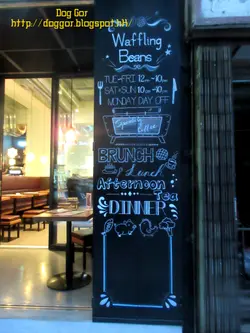 Dog Gor
http://doggor.blogspot.hk/
Waffling
Beans
TUE-FRI 12nn-10pm
SAT&SUN 10am-10pm
MONDAY DAY OFF
Coffee
BRUNCH
Lunch
Afternoon
Tea
DINNER